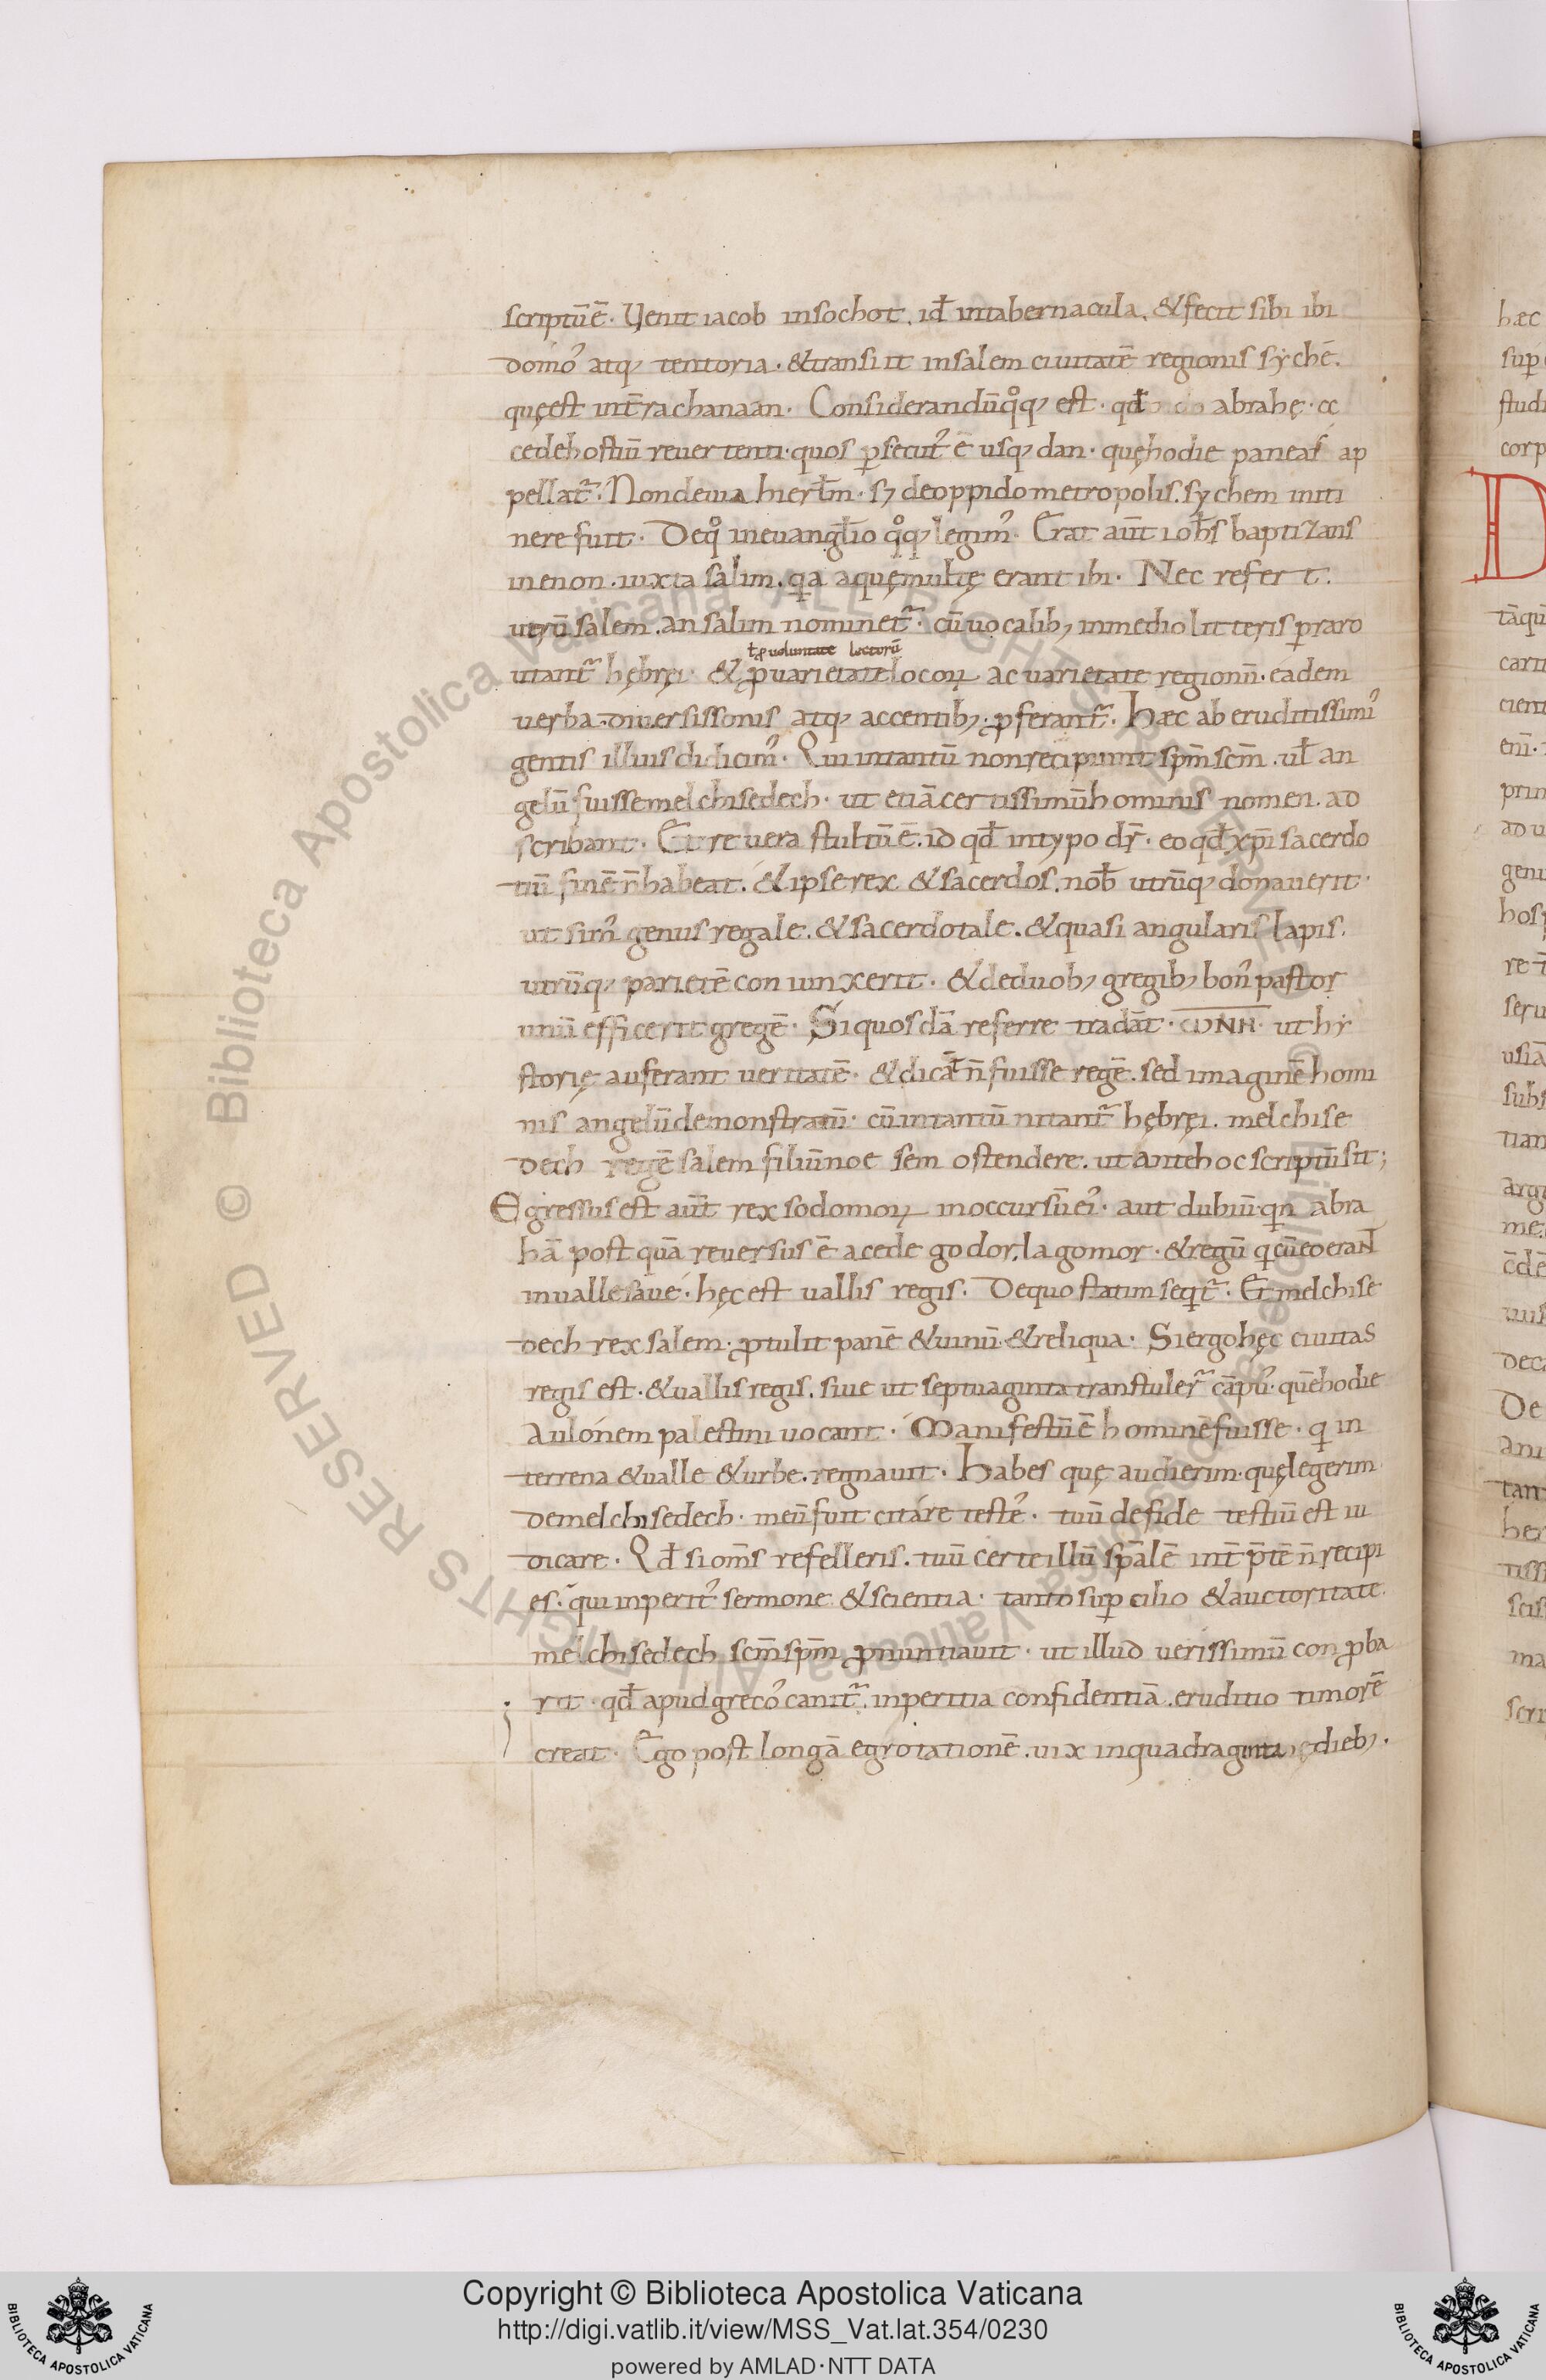 scriptū ē. Venit iacob insochot. id̄ intabernacula. & fecit sibi ibi
domos atq; tentoria. & transiit insalem ciuitatē regionis sychē.
quę est int̄ra chanaan. Considerandū q̊q; est. qd̄ abrahę. a
cede hostiū reuertenti. quos ꝑsecut᷒ ē usq; dan. quę hodie paneas ap
pellat᷑. Non deuia hierł̄m. s; de oppido metropolis. sychem in iti
nere fuit. De q̊ in euangł̄io q̊q; legim᷒. Erat aūt ioh̄s baptizans
in enon. iuxta salim. q̄a aquę multę erant ibi. Nec refert.
utrū salem. an salim nominet᷑. cū uocalib; in medio litteris ꝑraro
ł ꝓ uoluntate lectorū
utant᷑ hębręi. & ꝓ uarietate locoꝝ ac uarietate regionū. eadem
uerba. diuersis sonis atq; accentib; ꝓferant᷑. Hæc ab eruditissimi᷒
gentis illius didicim᷒. Qui intantū non recipiunt sp̄m sc̄m. uł an
gelū fuisse melchisedech. ut etiā certissimū hominis nomen. ad
scribant. Et re uera stultū ē. id qd̄ in typo dr̄. eo qd̄ xp̄i sacerdo
tiū finē n̄ habeat. & ipse rex & sacerdos. nob̄ utrūq; donauerit.
ut sim᷒ genus regale. & sacerdotale. & quasi angularis lapis.
utrūq; parietē coniunxerit. & de duob; gregib; bon᷒ pastor
unū effecerit gregē. Si quosdā referre tradāt. ωνη. ut hy
storię auferant ueritatē. & dicāt n̄ fuisse regē. sed imaginē homi
nis angelū demonstratū. cū intantū nitant᷑ hębręi. melchise
dech regē salem filiū noe sem ostendere. ut ante hoc scriptū sit;
Egressus est aūt rex sodomoꝝ in occursū ei᷒. aut dubiū. qn̄ abra
hā post quā reuersus ē a cede godor, lagomor. & regū q cū eo erant
in ualle saue. hęc est uallis regis. De quo statim seqt᷑. Et melchise
dech rex salem. ꝓtulit panē & uinū. & reliqua. Si ergo hęc ciuitas
regis est. & uallis regis. siue ut septuaginta transtuler᷑ cāpū. quē hodie
Aulonem palestini uocant. Manifestū ē hominē fuisse. q in
terrena & ualle & urbe. regnauit. Habes quę audierim. quę legerim
de melchisedech. meū fuit citare testes. tuū de fide testiū est iu
dicare. Qd̄ si om̄s refelleris. tuū certe illū sp̄alē int̄p̄tē n̄ recipi
es. qui inperit᷒ sermone & scientia. tanto suꝑcilio & auctoritate.
melchisedech sc̄m sp̄m ꝓnuntiauit. ut illud uerissimū conꝓba
rit. qd̄ apud greco᷒ canit᷑. inperitia confidentiā. eruditio timorē
creat. Ego post longā egrotationē. uix in quadraginta dieb;.
hæc
studi
corp
D
tāqū
carit
prin
ad u
geni
hos
seru
usiā
subs
tian
arg
me.
De
ani
tan
her
tiss
scis
ma
scri
Biblioteca Apostolica Vaticana ALL RIGHTS RESERVED ©
Copyright © Biblioteca Apostolica Vaticana
http://digi.vatlib.it/view/MSS_Vat.lat.354/0230
powered by AMLAD·NTT DATA
BIBLIOTECA APOSTOLICA VATICANA
BIBLIOTECA APOSTOLICA VATICANA